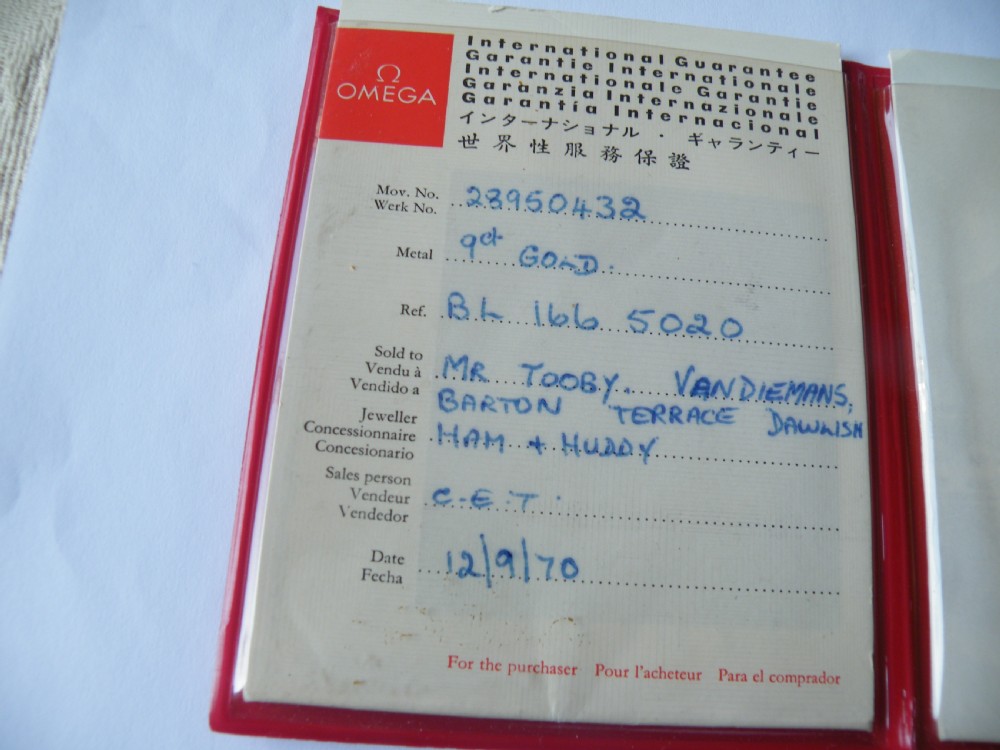 Ω
OMEGA
International Guarantee
Garantie Internationale
Internationale Garantie
Garanzia Internazionale
Garantía Internacional
インターナショナル・ギャランティー
世界性服務保證
Mov. No.
Werk No. 28950432
Metal 9ct GOLD.
Ref. BL 166 5020
Sold to
Vendu à MR TOOBY. VANDIEMANS,
Vendido a BARTON TERRACE DAWLISH
Jeweller
Concessionnaire HAM + HUDDY
Concesionario
Sales person
Vendeur C.E.T.
Vendedor
Date 12/9/70
Fecha
For the purchaser Pour l'acheteur Para el comprador